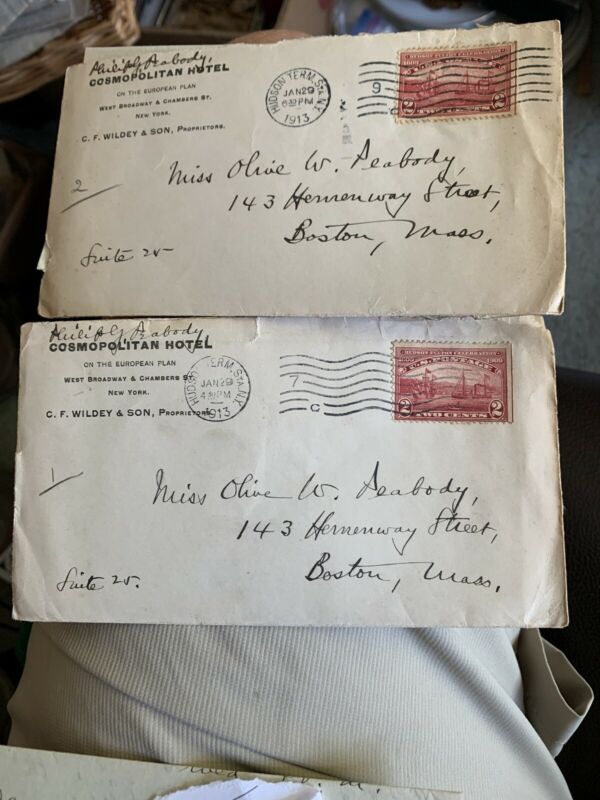 Philip G. Peabody,
COSMOPOLITAN HOTEL
ON THE EUROPEAN PLAN
WEST BROADWAY & CHAMBERS ST.
NEW YORK.
C. F. WILDEY & SON, PROPRIETORS.
HUDSON TERM. STA. N.Y.
JAN 29
6 PM
1913
9
C
HUDSON-FULTON CELEBRATION
1609
U.S. POSTAGE
2 2
TWO CENTS
2
Miss Olive W. Peabody,
143 Hemenway Street,
Boston, Mass.
Suite 25
Philip G. Peabody
COSMOPOLITAN HOTEL
ON THE EUROPEAN PLAN
WEST BROADWAY & CHAMBERS ST.
NEW YORK.
C. F. WILDEY & SON, PROPRIETORS.
HUDSON TERM. STA. N.Y.
JAN 29
4 PM
1913
7
C
HUDSON-FULTON CELEBRATION
1909
U.S. POSTAGE
2 TWO CENTS 2
1
Miss Olive W. Peabody,
143 Hemenway Street,
Boston, Mass.
Suite 25.